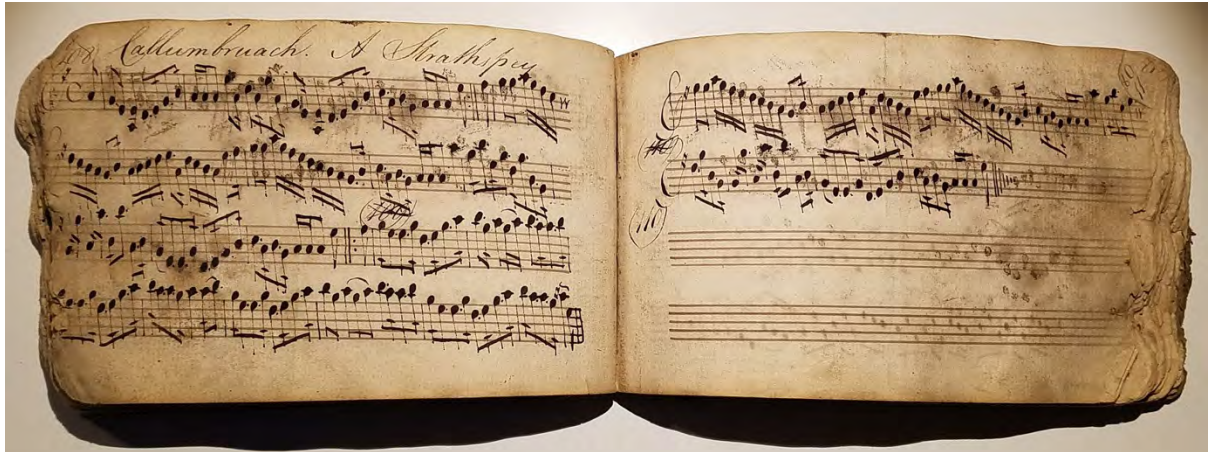 Callumbruach. A Strathspey